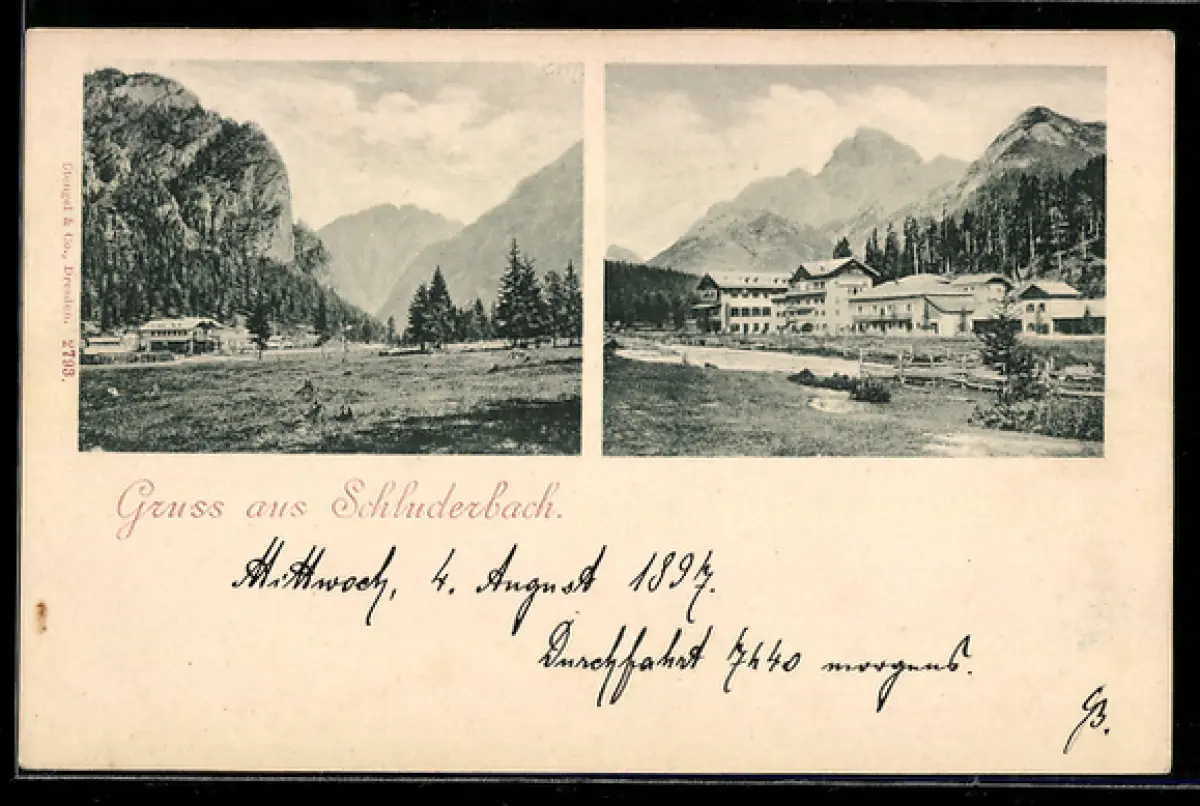 Stengel & Co., Dresden. 2793.
Gruss aus Schluderbach.
Mittwoch, 4. August 1897.
Durchfahrt 7h40 morgens.